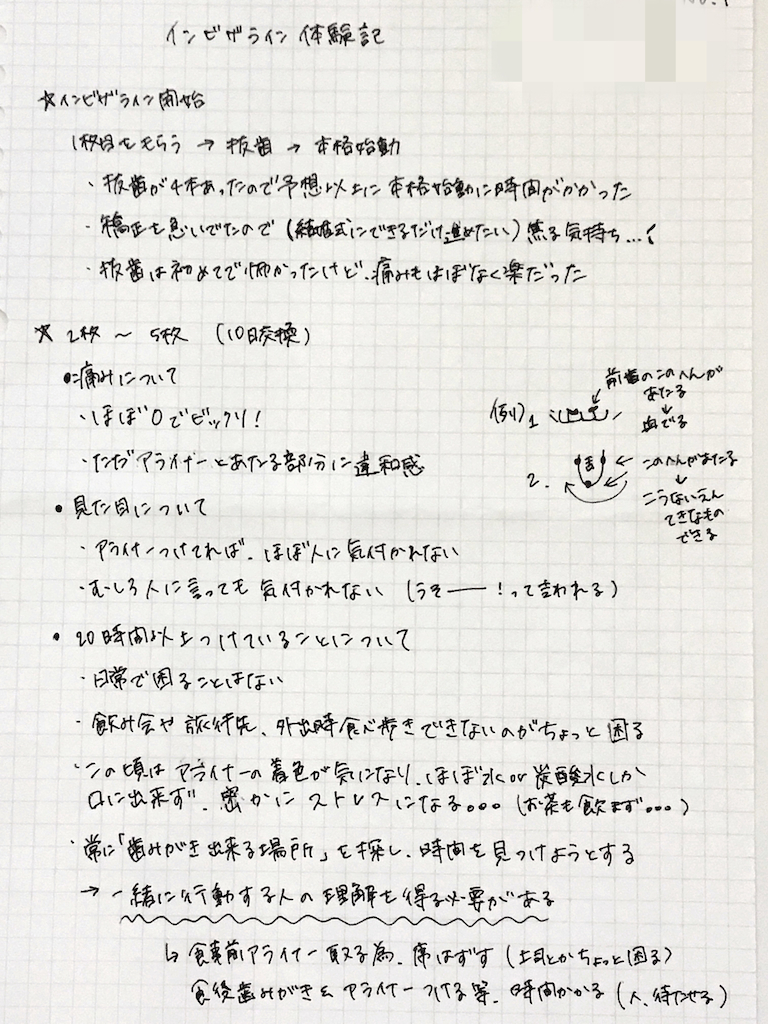 No.1
インビザライン 体験記
☆インビザライン開始
1枚目をもらう → 抜歯 → 本格始動
・抜歯が4本あったので予想以上に本格始動に時間がかかった
・矯正を急いでたので(結婚式にできるだけ進めたい)焦る気持ち…
・抜歯は初めてで怖かったけど、痛みもほぼなく楽だった
☆ 2枚 〜 5枚 (10日交換)
●痛みについて
・ほぼ0でビックリ!
・ただアライナーとあたる部分に違和感
例) 1
前歯のこのへんが
あたる
↓
血でる
2.
このへんがあたる
↓
こうないえん
てきなもの
できる
● 見た目について
・アライナーつけてれば、ほぼ人に気付かれない
・むしろ人に言っても気付かれない (うそー!って言われる)
● 20時間以上つけていることについて
・日常で困ることはない
・飲み会や旅行先、外出時食べ歩きできないのがちょっと困る
・この頃はアライナーの着色が気になり、ほぼ水or炭酸水しか
口に出来ず、密かにストレスになる。。。(お茶も飲まず。。。)
・常に「歯みがき出来る場所」を探し、時間を見つけようとする
→ 一緒に行動する人の理解を得る必要がある
↳ 食事前アライナー取る為、席はずす (土日とかちょっと困る)
食後歯みがき& アライナーつける等、時間かかる (人、待たせる)